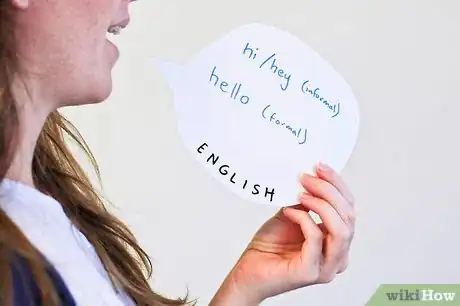 hi/hey (informal)
hello (formal)
ENGLISH
wikiHow